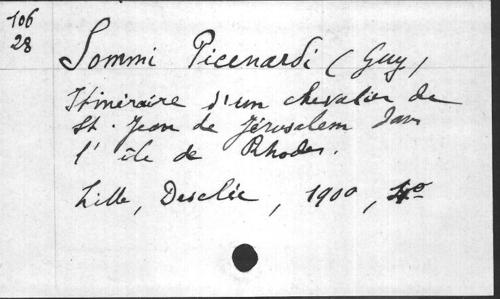 106
28
Sommi Picenardi (Guy)
Itinéraire d'un chevalier de
St. Jean de Jérusalem dans
l'île de Rhodes.
Lille, Desclée, 1900, 4o